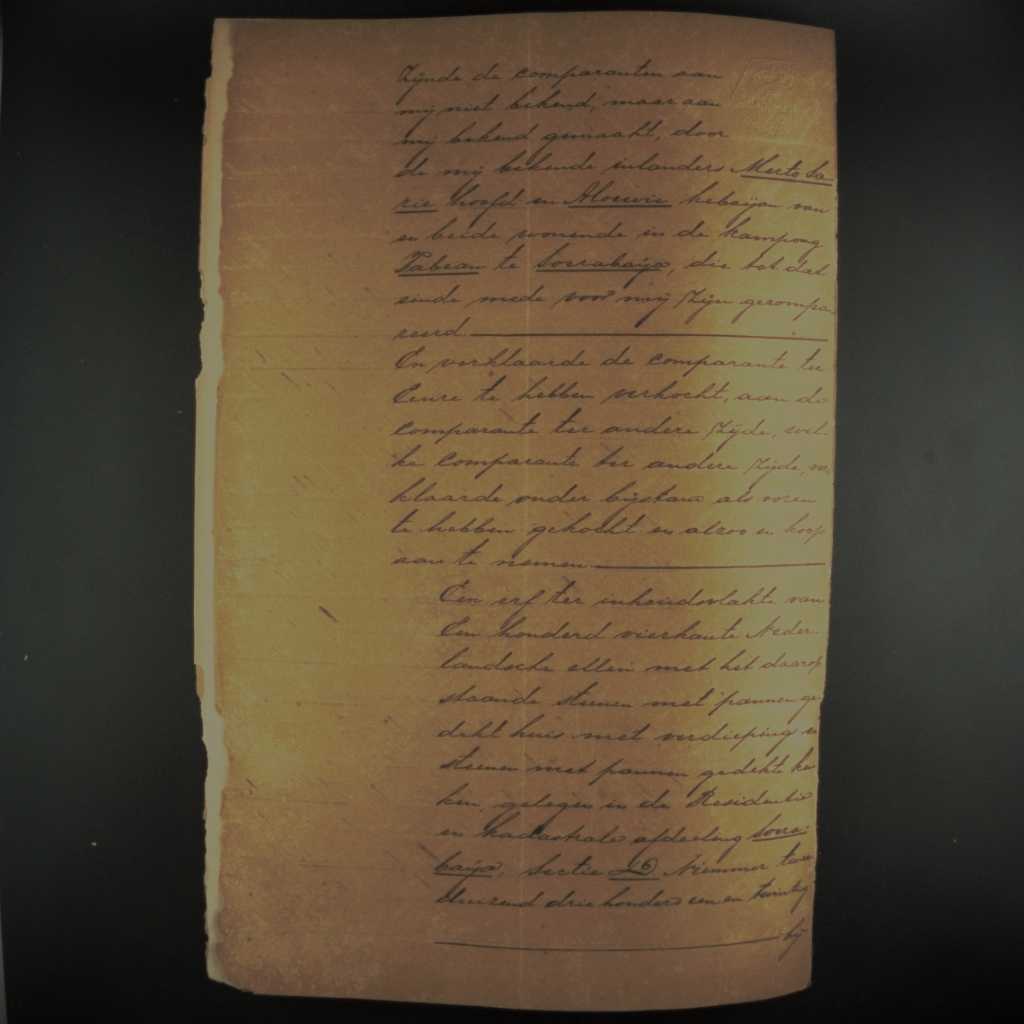 Zijnde de comparanten aan
mij niet bekend, maar aan
mij bekend gemaakt, door
de mij bekende inlanders Merto Sa
rie hoofd en Aloewie kebaijan van
en beide wonende in de kampong
Tabean te Soerabaija, die tot dat
einde mede voor mij Zijn gecompa
reerd
En verklaarde de comparante ter
Eenre te hebben verkocht, aan de
comparante ter andere Zijde, wel
ke comparante ter andere Zijde, ver
klaarde onder bijstand als voren
te hebben gekocht en alzoo in koop
aan te nemen
Een erf ter inhoudsvlakte van
Een honderd vierkante Neder
landsche ellen met het daarop
staande steenen met pannen ge
dekt huis met verdieping en
steenen met pannen gedekte keu
ken, gelegen in de Residentie
en kadastrale afdeeling Soera
baija, Sectie Nummer twee
duizend drie honderd een en twintig
bij